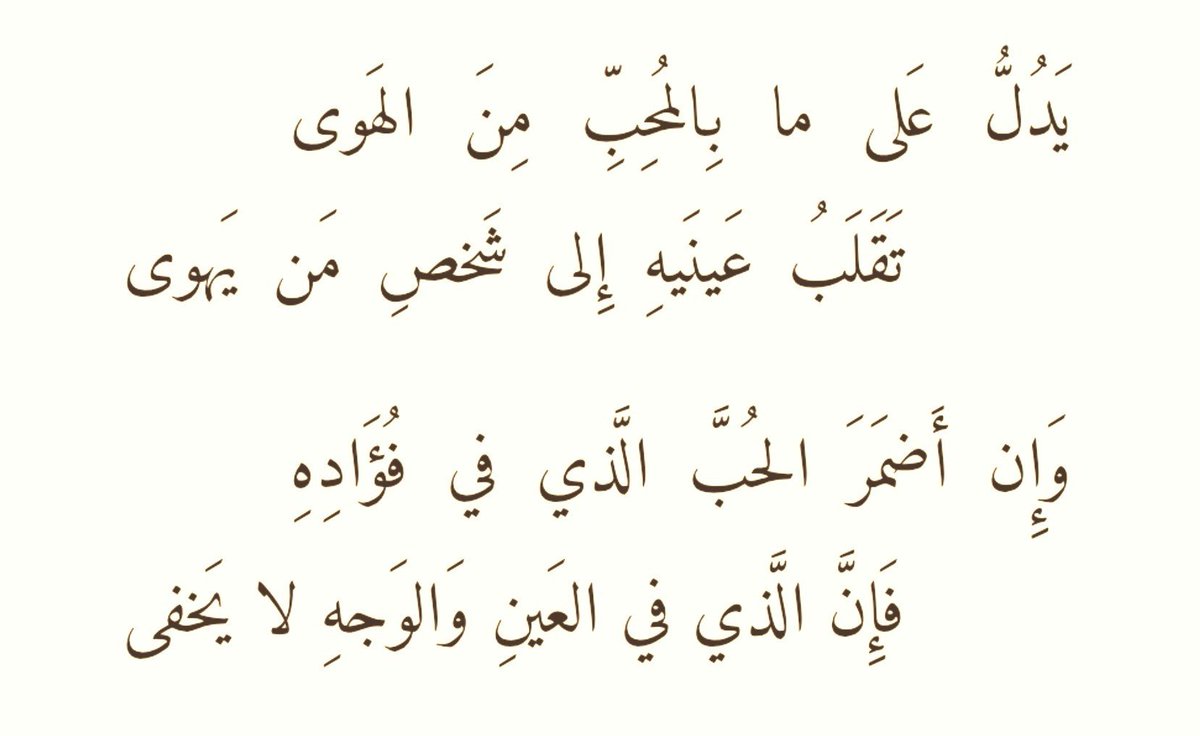 يَدُلُّ عَلى ما بِالمُحِبِّ مِنَ الهَوى
تَقَلَبُ عَينَيهِ إِلى شَخصِ مَن يَهوى
وَإِن أَضمَرَ الحُبَّ الَّذي في فُؤَادِهِ
فَإِنَّ الَّذي في العَينِ وَالوَجهِ لا يَخفى